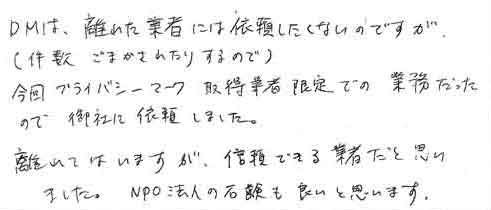 DMは、離れた業者には依頼したくないのですが、
(件数 ごまかされたりするので)
今回 プライバシーマーク 取得業者 限定での 業務だった
ので 御社に 依頼しました。
離れてはいますが、信頼できる業者だと思い
ました。 NPO法人の石鹸も良いと思います。